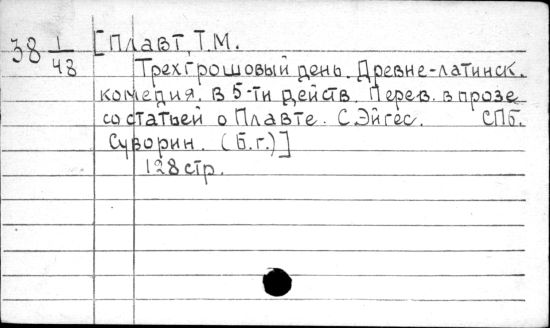 38 1/48 [Плавт, Т.М.
Трехгрошовый день. Древне-латинск.
комедия. в 5-ти действ. Перев. в прозе
со статьей о Плавте. С. Эйгес. СПб.
Суворин. (б.г.)]
128 стр.